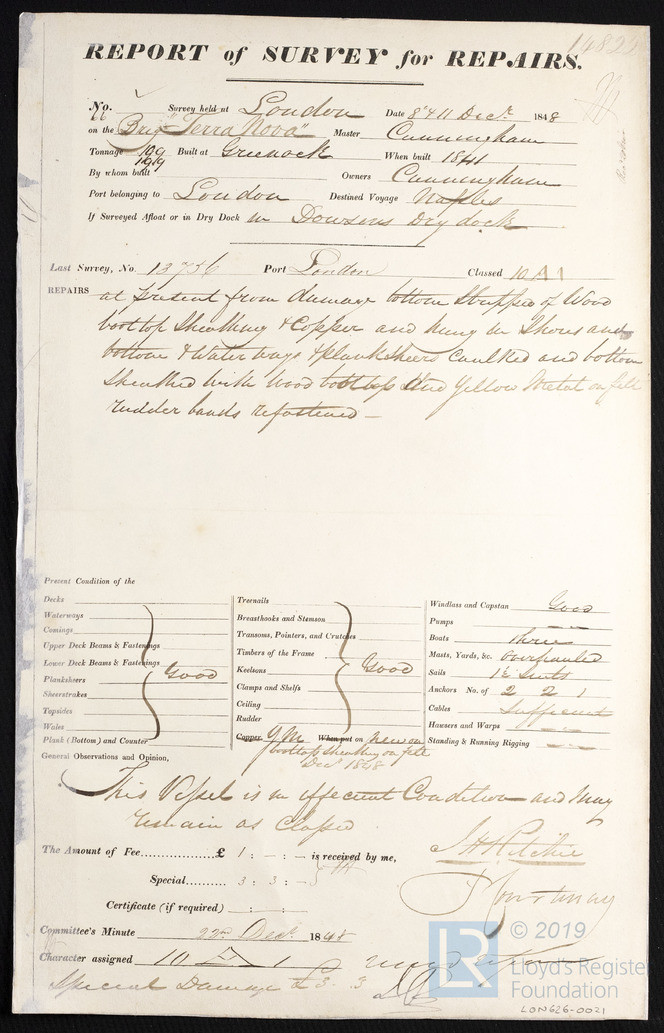 REPORT of SURVEY for REPAIRS.
No. Survey held at London Date 8 & 11 Decr. 1848
on the Brig "Terra Nova" Master Cunningham
Tonnage 199 Built at Greenock When built 1841
By whom built Owners Cunningham
Port belonging to London Destined Voyage Naples
If Surveyed Afloat or in Dry Dock in Dowsons Dry dock
Last Survey, No. 13756 Port London Classed 10 A 1
REPAIRS at present from damage bottom Stripped of Wood
boottop Sheathing & Copper and hung in Shores and
bottom & Waterways & planksheers Caulked and bottom
Sheathed with wood boottop and Yellow Metal on felt
rudder bands refastened —
Present Condition of the
Decks
Waterways
Comings
Upper Deck Beams & Fastenings
Lower Deck Beams & Fastenings
Planksheers Good
Sheerstrakes
Topsides
Wales
Plank (Bottom) and Counter
Treenails
Breasthooks and Stemson
Transoms, Pointers, and Crutches
Timbers of the Frame
Keelsons Good
Clamps and Shelfs
Ceiling
Rudder
Copper YM When put on New on
boottop sheathing on felt
Decr 1848
Windlass and Capstan Good
Pumps
Boats Three
Masts, Yards, &c. Overhauled
Sails 1½ Suits
Anchors No. of 2 2 1
Cables Sufficient
Hausers and Warps
Standing & Running Rigging
General Observations and Opinion,
This Vessel is in efficient Condition and May
remain as Classed
The Amount of Fee £ 1 : — : — is received by me,
Special 3 : 3 : —
Certificate (if required) : :
J H Ritchie
Courtenay
Committee's Minute 22nd Decr. 1848
Character assigned 10 A 1
Special Damage £3 : 3
LR © 2019
Lloyd's Register
Foundation
LON626-0021